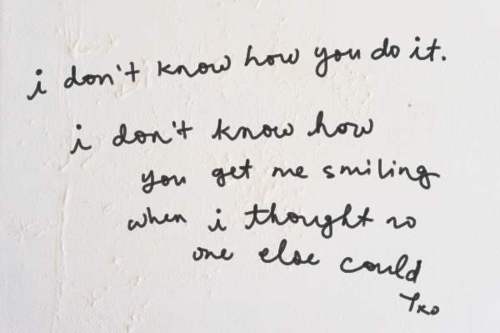 i don't know how you do it.
i don't know how
you get me smiling
when i thought no
one else could